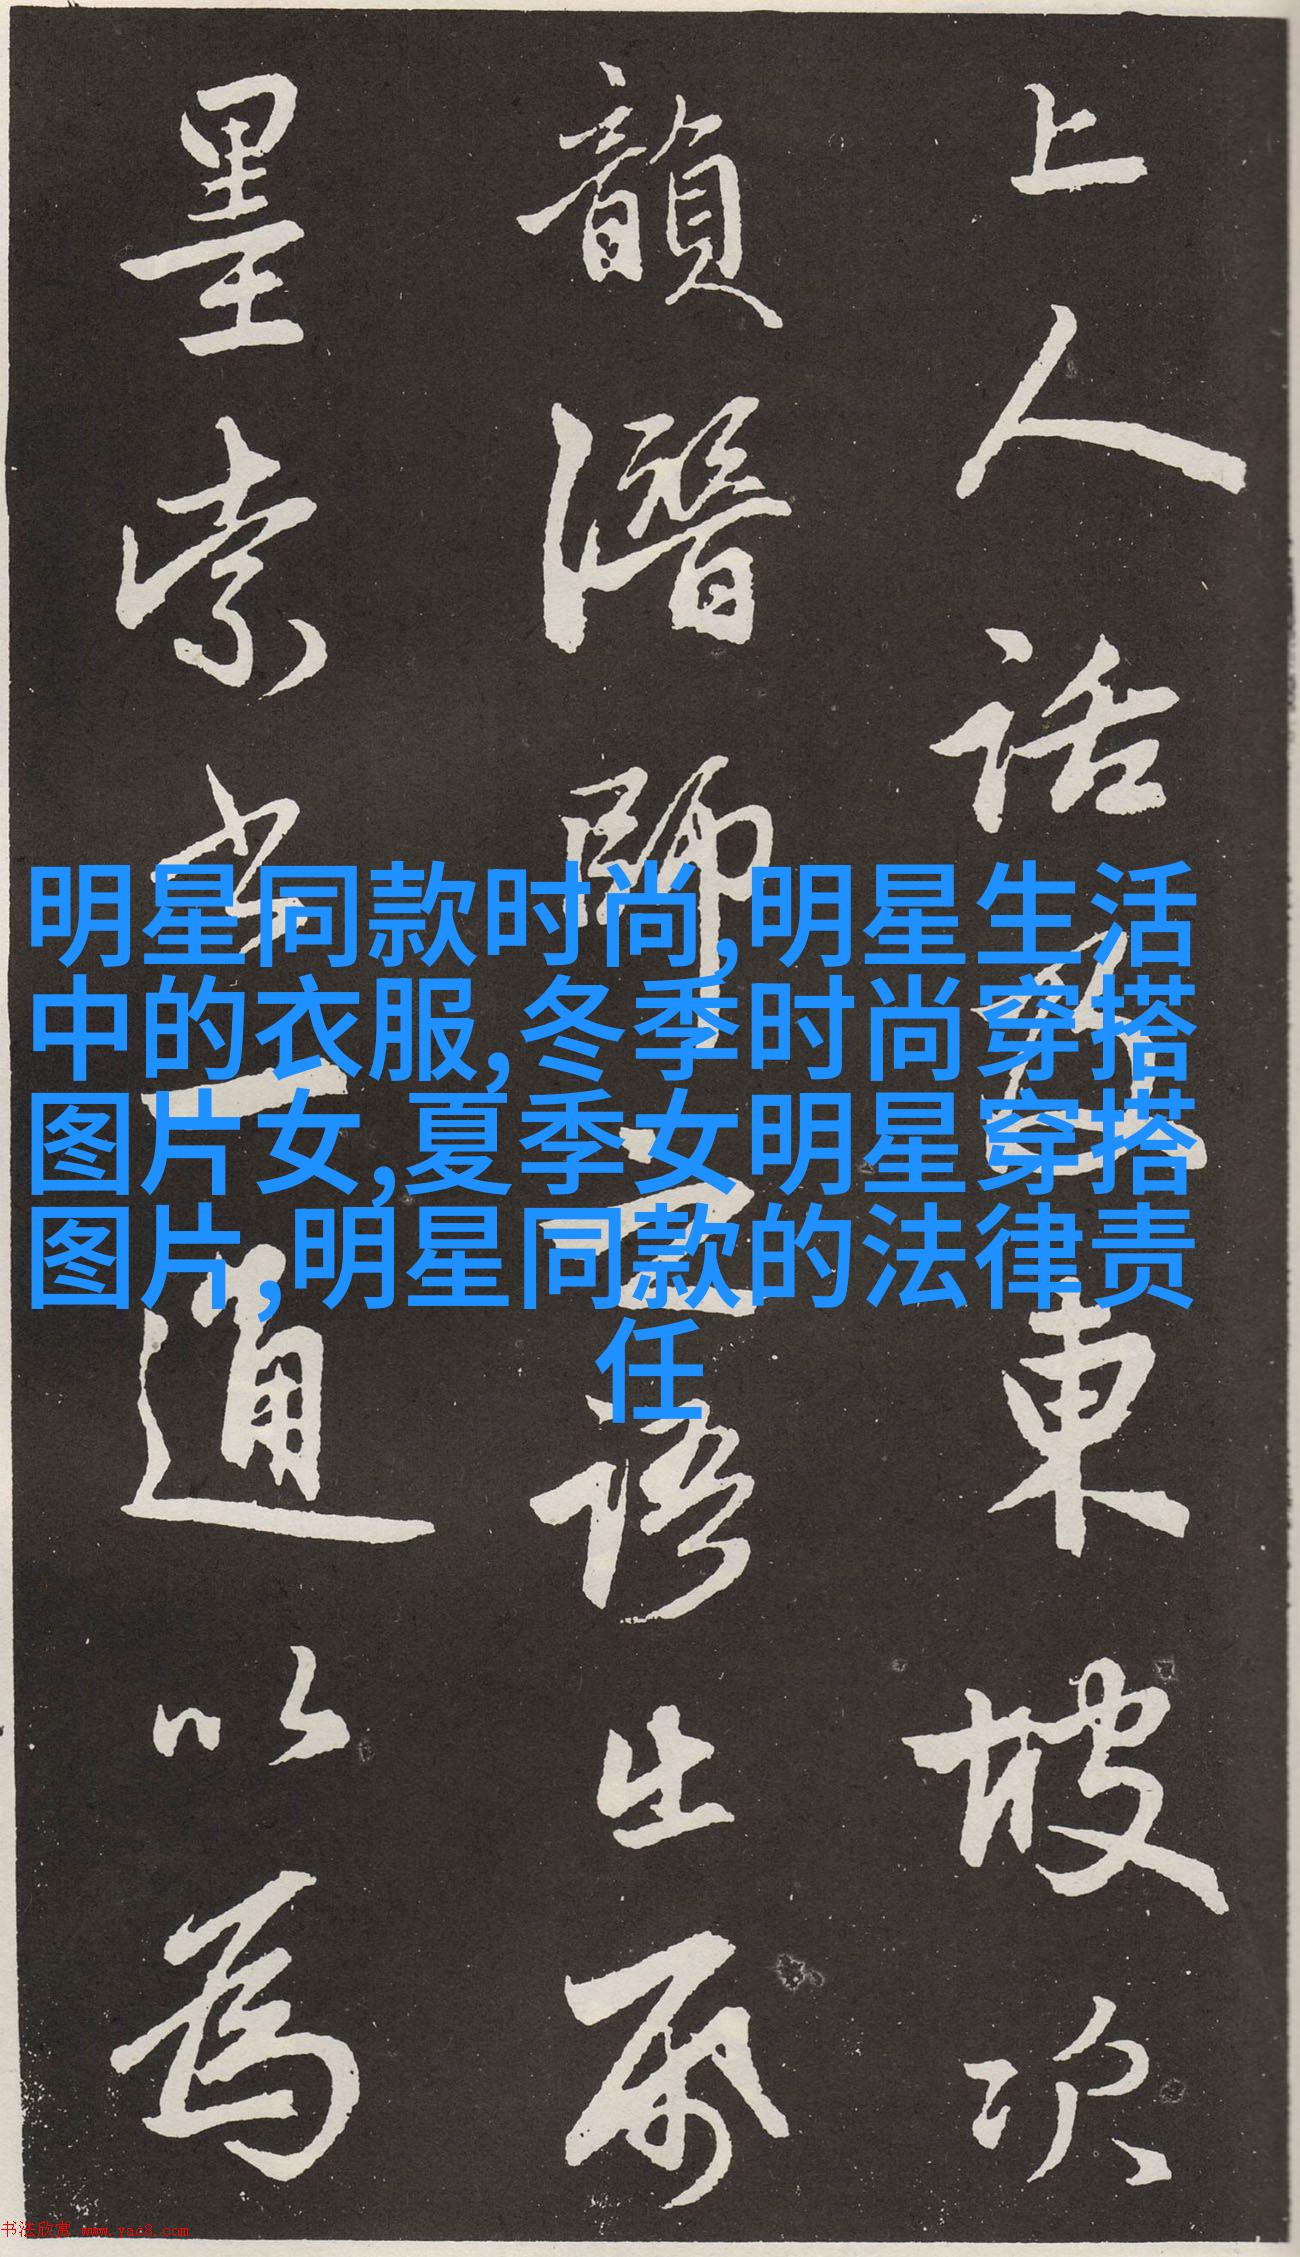 上人話東坡次
韻潛師語出帋
墨索書一通以為
明星同款时尚,明星生活
中的衣服,冬季时尚穿搭
图片女,夏季女明星穿搭
图片,明星同款的法律责
任
书法欣赏 www.yac8.com